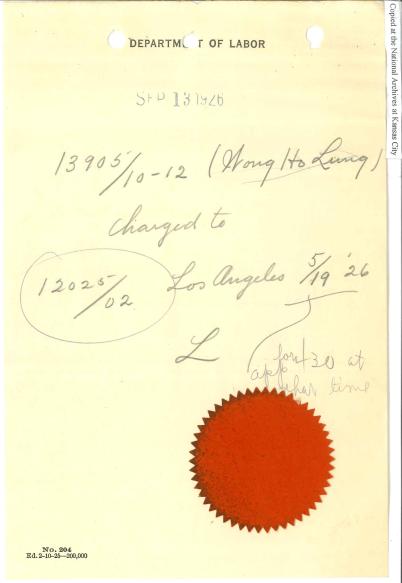 DEPARTMENT OF LABOR
SEP 13 1926
13905/10-12 (Wong Ho Lung)
charged to
12025/02 Los Angeles 5/19 '26
L
for 430 at
app
that time
No. 204
Ed. 2-10-25—200,000
Copied at the National Archives at Kansas City